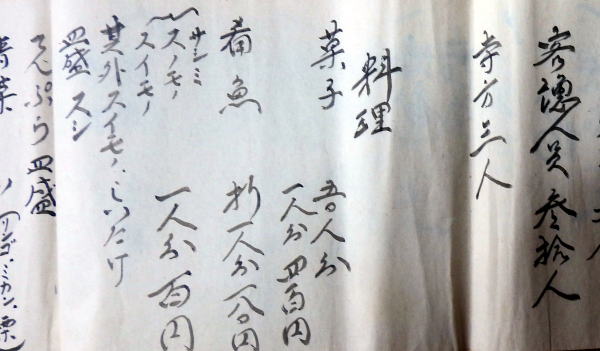 客總人員参拾人
寺方三人
料理
菓子 人分
一人分 四百円
魚 折一人分一八〇円
サシミ
スノモノ
スイモノ 一人分 百円
其外スイモノ、しいたけ
皿盛 スシ
てんぷら皿盛
リンゴ、ミカン、栗